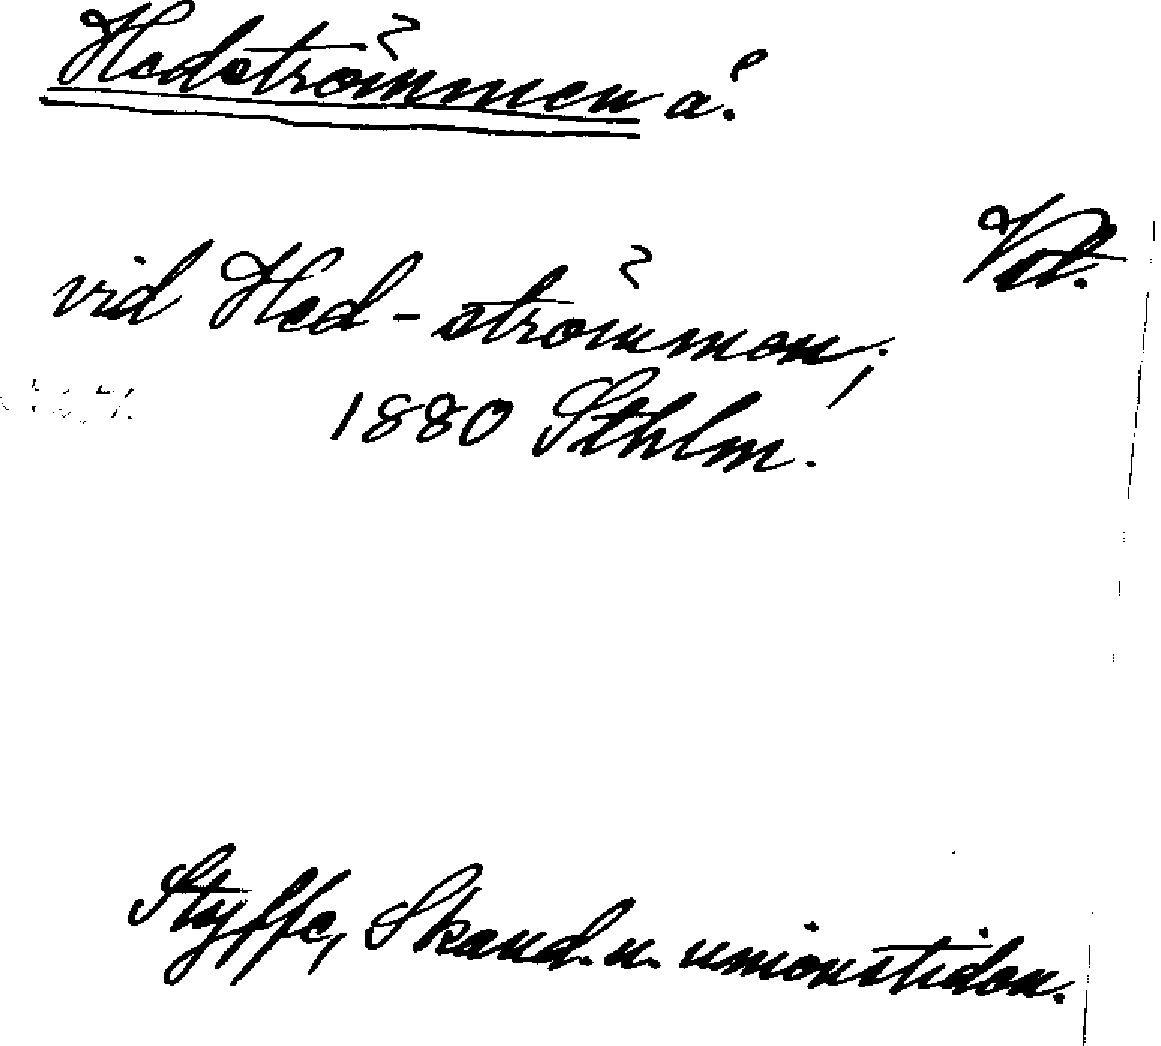 Hedströmmen å.
Vstm.
vid Hed-strömmen;
1880 Sthlm.
Styffe, Skand. u. unionstiden.